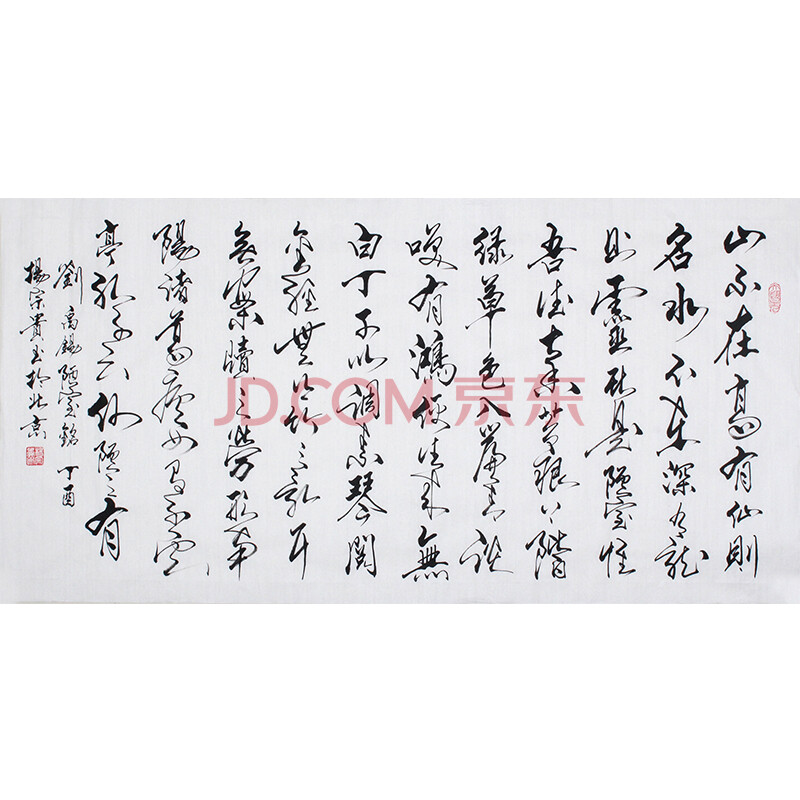 山不在高有仙則
名水不在深有龍
則靈斯是陋室惟
吾德馨苔痕上階
綠草色入簾青談
咲有鴻儒往來無
白丁可以調素琴閱
金經無絲竹之亂耳
無案牘之勞形南
陽諸葛廬西蜀子雲
亭孔子云何陋之有
劉禹錫陋室銘 丁酉
楊宗貴書於北京
JD.COM 京东